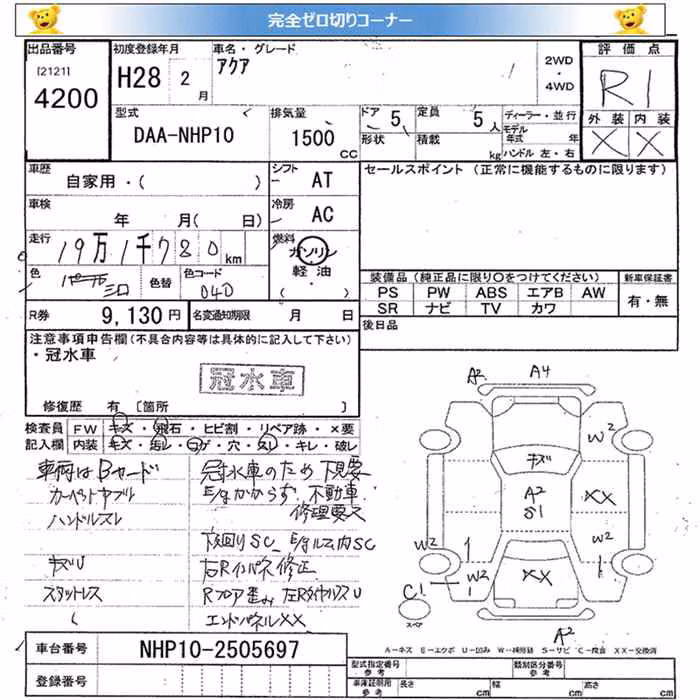 完全ゼロ切りコーナー
出品番号
[2121]
4200
初度登録年月
H28 2 月
車名・グレード
アクア
2WD
・
4WD
評価点
R1
外装 内装
X X
型式
DAA-NHP10
排気量
1500
CC
ドア 5
形状
定員 5 人
積載 kg
ディーラー・並行
モデル年式 年
ハンドル 左・右
車歴
自家用・( )
シフト
AT
セールスポイント (正常に機能するものに限ります)
車検
年 月( 日)
冷房
AC
走行
19万1千780 km
燃料
ガソリン
・
軽油
・
( )
色
色替
色コード
040
装備品 (純正品に限り○をつけてください)
PS PW ABS エアB AW
SR ナビ TV カワ
新車保証書
有・無
R券
9,130 円
名変通知期限 月 日
後日品
注意事項申告欄 (不具合内容等は具体的に記入して下さい)
・冠水車
冠水車
修復歴 有 [箇所 ]
検査員
記入欄
FW キズ・飛石・ヒビ割・リペア跡・×要
内装 キズ・汚レ・コゲ・穴・スレ・キレ・破レ
車両はBヤード
ハンドルスレ
キズU
冠水車のため下見要
E/gかからず 不動車
修理要ス
下回りSC、E/gルーム内SC
右Rインパネ修正
Rフロア歪み
エンドパネルXX
A2 A4
W2
キズ
A2
S1
XX
W2 W2
W2
XX
C1
スペア
A2
A-キズ E-エクボ U-凹み W-補修跡 S-サビ C-腐食 XX-交換済
車台番号
NHP10-2505697
登録番号
型式指定番号
参考
類別区分番号
参考
車庫証明用
参考
長さ cm
幅 cm
高さ cm